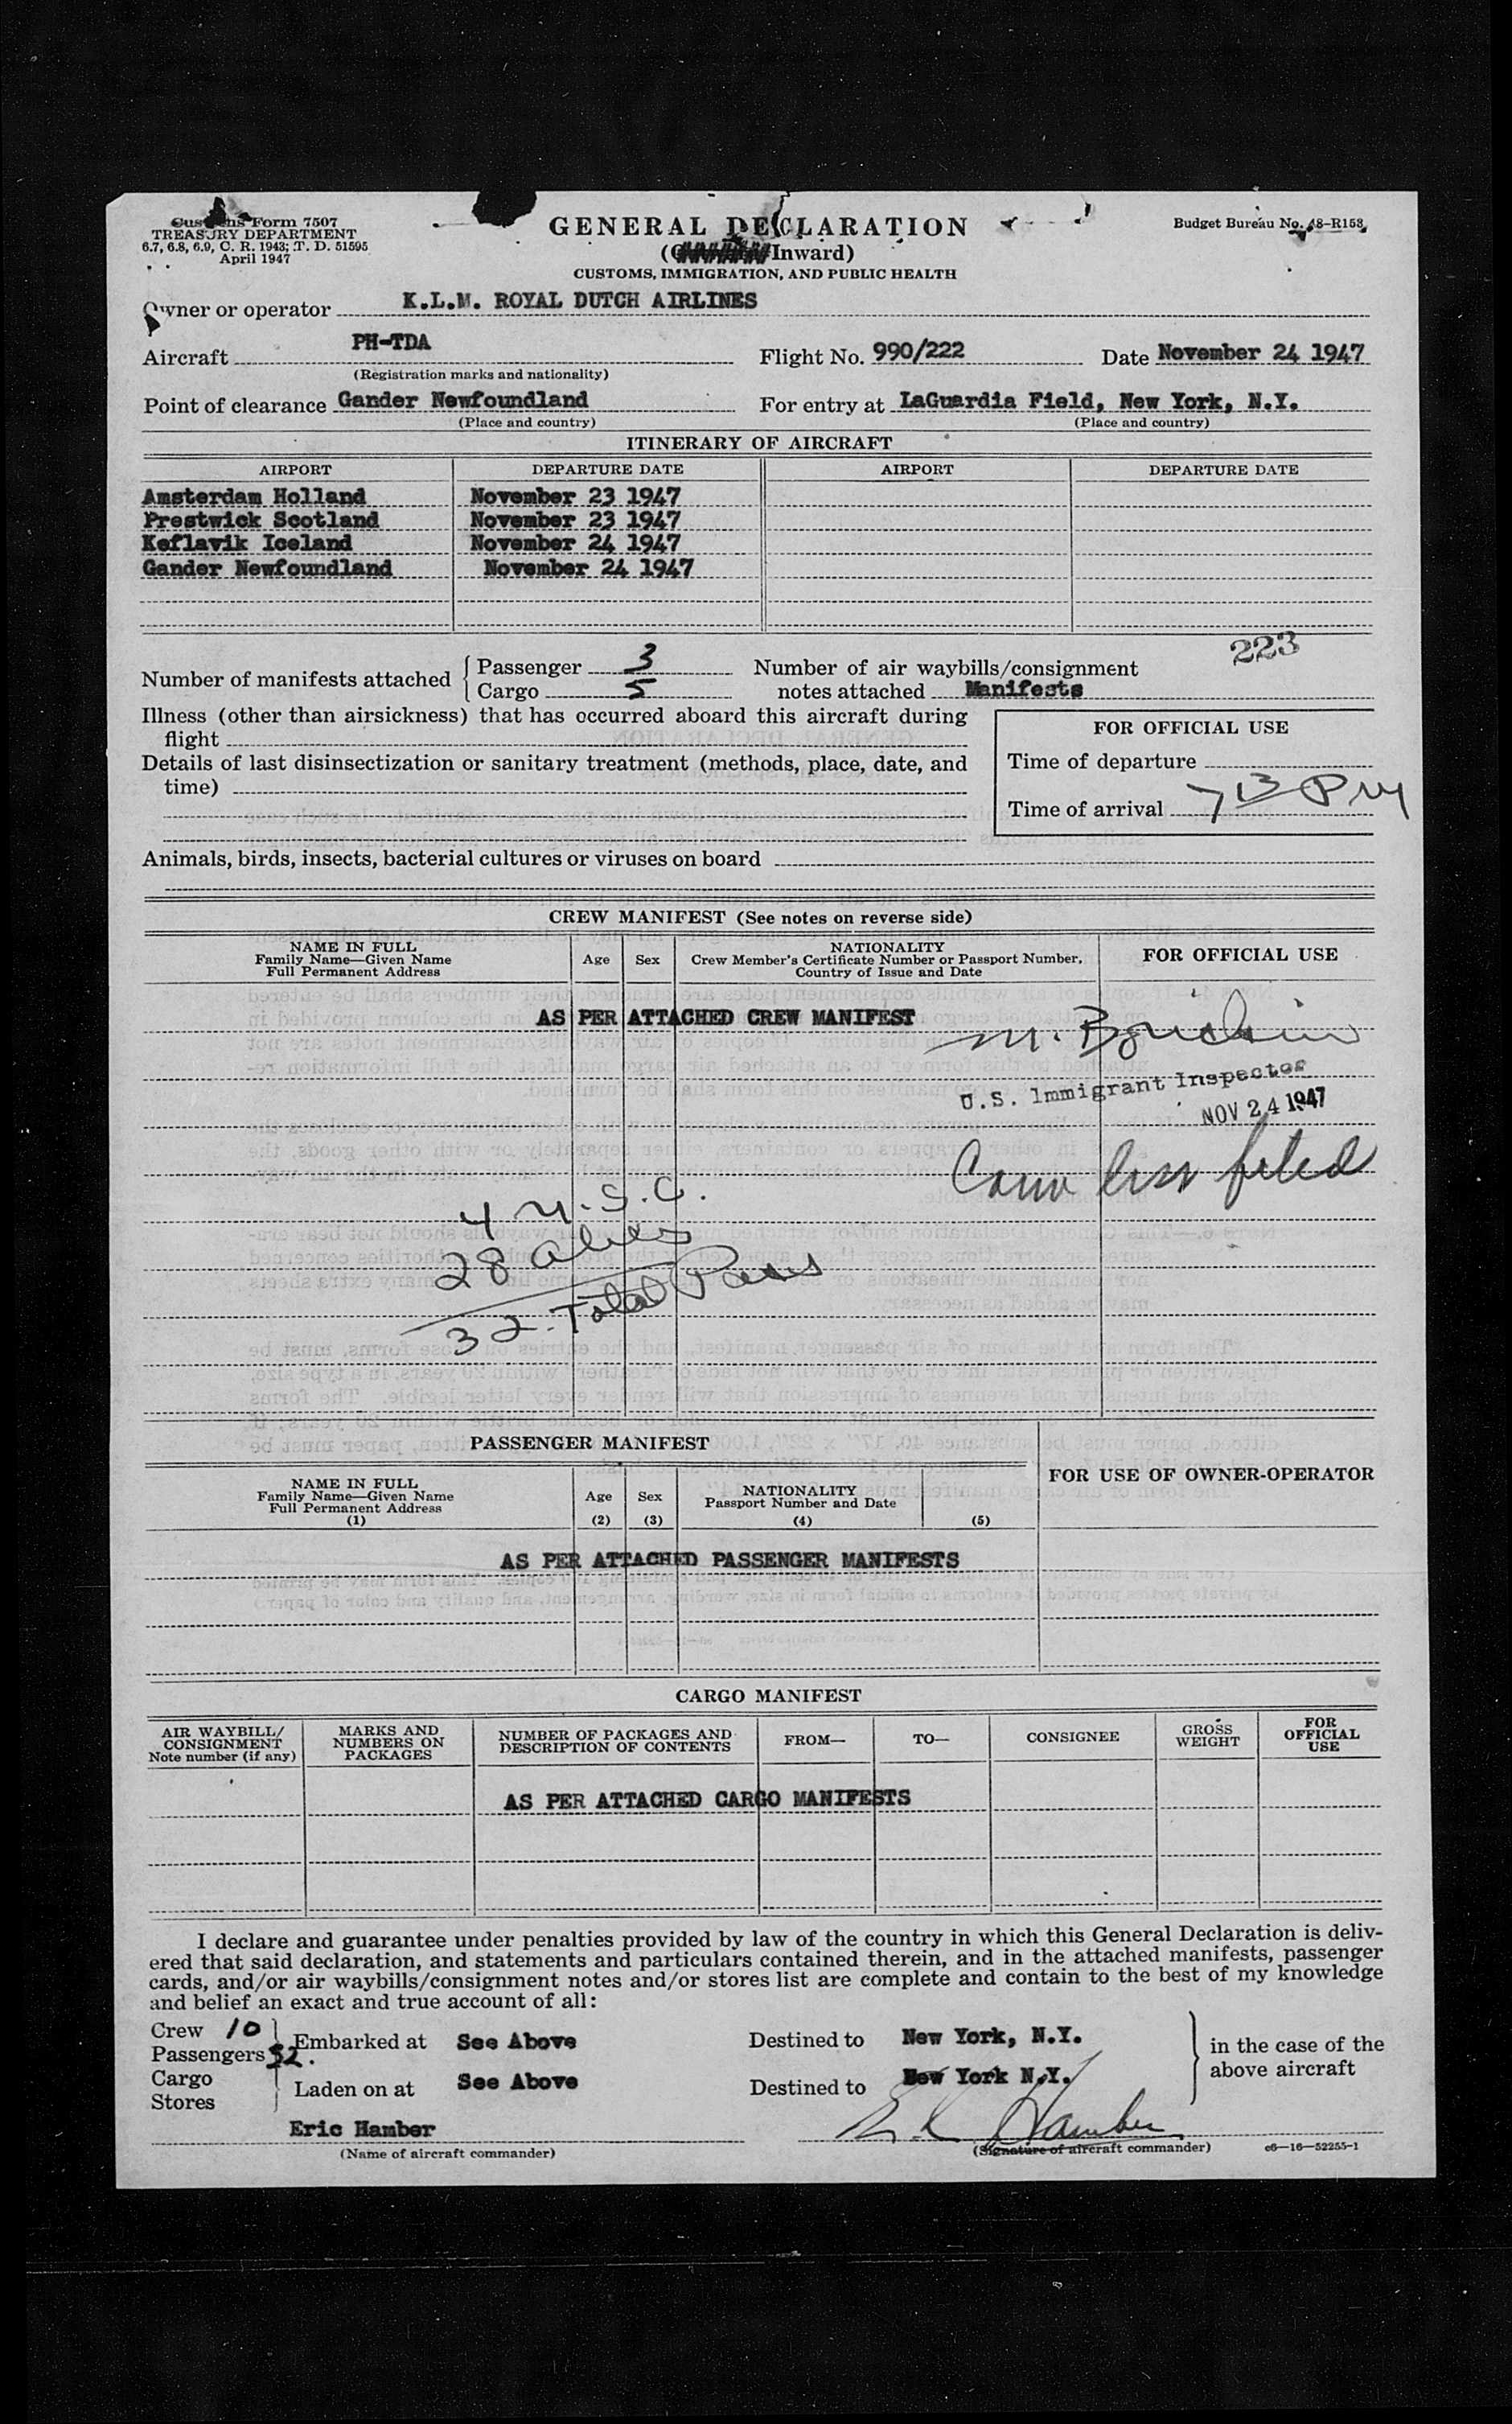 Customs Form 7507
TREASURY DEPARTMENT
6.7, 6.8, 6.9, C. R. 1943; T. D. 51595
April 1947
GENERAL DECLARATION
( Inward)
CUSTOMS, IMMIGRATION, AND PUBLIC HEALTH
Budget Bureau No. 48-R153
Owner or operator K.L.M. ROYAL DUTCH AIRLINES
Aircraft PH-TDA Flight No. 990/222 Date November 24 1947
(Registration marks and nationality)
Point of clearance Gander Newfoundland For entry at LaGuardia Field, New York, N.Y.
(Place and country) (Place and country)
ITINERARY OF AIRCRAFT
AIRPORT DEPARTURE DATE AIRPORT DEPARTURE DATE
Amsterdam Holland November 23 1947
Prestwick Scotland November 23 1947
Keflavik Iceland November 24 1947
Gander Newfoundland November 24 1947
223
Number of manifests attached { Passenger 3 Number of air waybills/consignment
Cargo 5 notes attached Manifests
Illness (other than airsickness) that has occurred aboard this aircraft during
flight
Details of last disinsectization or sanitary treatment (methods, place, date, and
time)
FOR OFFICIAL USE
Time of departure
Time of arrival 7 13 PM
Animals, birds, insects, bacterial cultures or viruses on board
CREW MANIFEST (See notes on reverse side)
NAME IN FULL
Family Name—Given Name
Full Permanent Address
Age Sex
NATIONALITY
Crew Member's Certificate Number or Passport Number,
Country of Issue and Date
FOR OFFICIAL USE
AS PER ATTACHED CREW MANIFEST
U.S. Immigrant Inspector
NOV 24 1947
filed
4 U.S.C.
28 aliens
32 Total Pass
PASSENGER MANIFEST
NAME IN FULL
Family Name—Given Name
Full Permanent Address
(1)
Age
(2)
Sex
(3)
NATIONALITY
Passport Number and Date
(4) (5)
FOR USE OF OWNER-OPERATOR
AS PER ATTACHED PASSENGER MANIFESTS
CARGO MANIFEST
AIR WAYBILL/
CONSIGNMENT
Note number (if any)
MARKS AND
NUMBERS ON
PACKAGES
NUMBER OF PACKAGES AND
DESCRIPTION OF CONTENTS
FROM—
TO—
CONSIGNEE
GROSS
WEIGHT
FOR
OFFICIAL
USE
AS PER ATTACHED CARGO MANIFESTS
I declare and guarantee under penalties provided by law of the country in which this General Declaration is deliv-
ered that said declaration, and statements and particulars contained therein, and in the attached manifests, passenger
cards, and/or air waybills/consignment notes and/or stores list are complete and contain to the best of my knowledge
and belief an exact and true account of all:
Crew 10
Passengers 32.
Embarked at See Above Destined to New York, N.Y.
Cargo
Stores
Laden on at See Above Destined to New York N.Y.
in the case of the
above aircraft
Eric Hamber
(Name of aircraft commander)
Hamber
(Signature of aircraft commander)
c6—16—52255-1